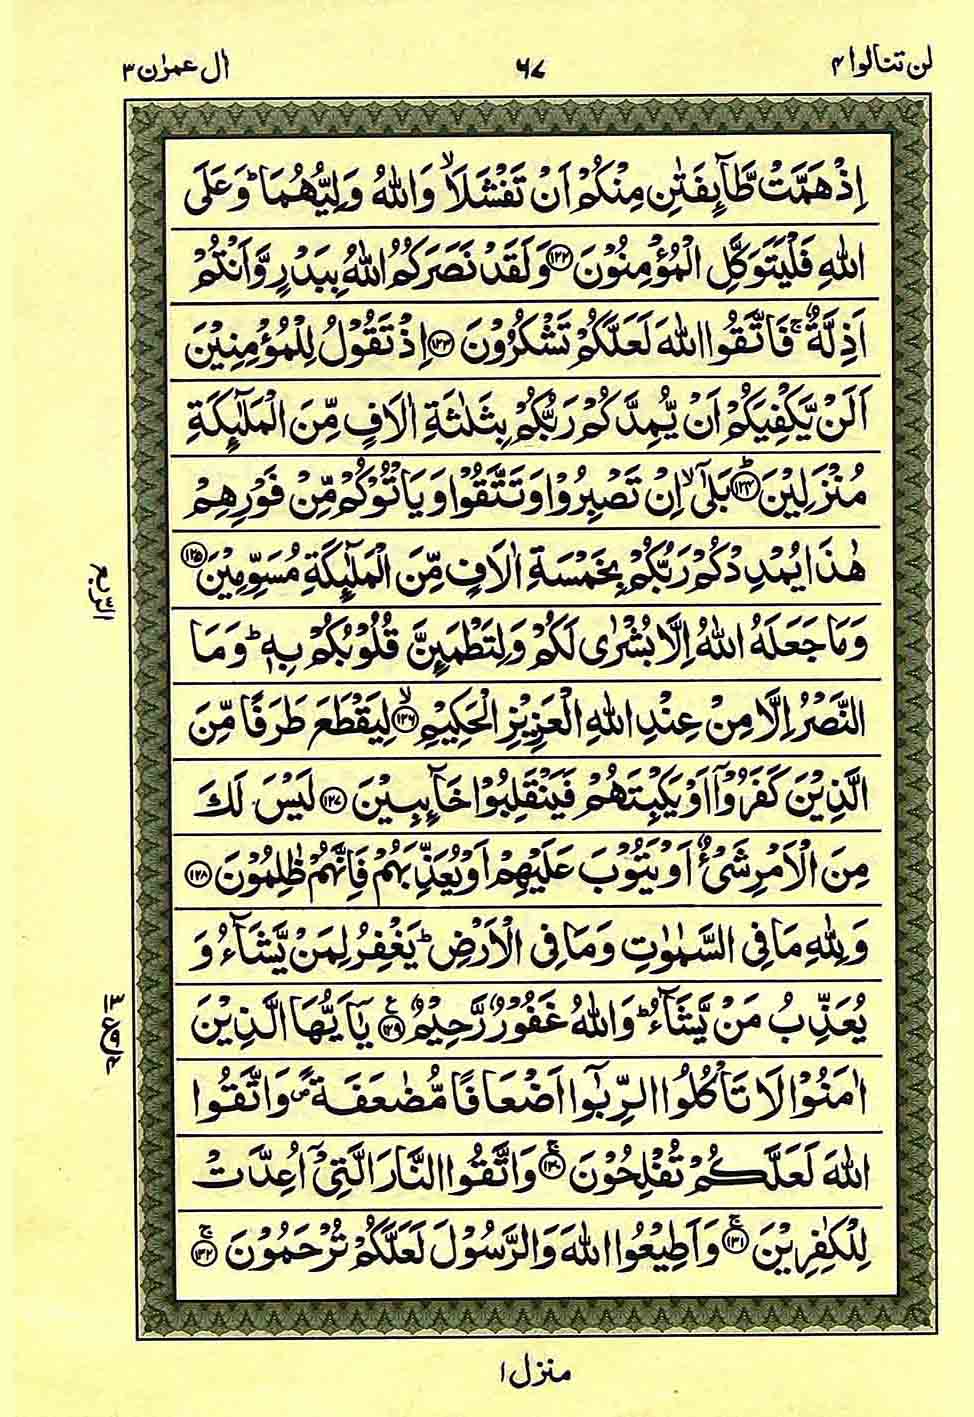 لن تنالوا ۴
۶۷
اٰل عمرٰن ۳
اِذْ هَمَّتْ طَّآىِٕفَتٰنِ مِنْكُمْ اَنْ تَفْشَلَا ۙ وَاللّٰهُ وَلِيُّهُمَا ؕ وَعَلَى
اللّٰهِ فَلْيَتَوَكَّلِ الْمُؤْمِنُوْنَ ﴿۱۲۲﴾ وَلَقَدْ نَصَرَكُمُ اللّٰهُ بِبَدْرٍ وَّاَنْتُمْ
اَذِلَّةٌ ۚ فَاتَّقُوا اللّٰهَ لَعَلَّكُمْ تَشْكُرُوْنَ ﴿۱۲۳﴾ اِذْ تَقُوْلُ لِلْمُؤْمِنِيْنَ
اَلَنْ يَّكْفِيَكُمْ اَنْ يُّمِدَّكُمْ رَبُّكُمْ بِثَلٰثَةِ اٰلَافٍ مِّنَ الْمَلٰٓىِٕكَةِ
مُنْزَلِيْنَ ﴿۱۲۴﴾ؕ بَلٰٓى ۙ اِنْ تَصْبِرُوْا وَتَتَّقُوْا وَيَاْتُوْكُمْ مِّنْ فَوْرِهِمْ
هٰذَا يُمْدِدْكُمْ رَبُّكُمْ بِخَمْسَةِ اٰلَافٍ مِّنَ الْمَلٰٓىِٕكَةِ مُسَوِّمِيْنَ ﴿۱۲۵﴾
وَمَا جَعَلَهُ اللّٰهُ اِلَّا بُشْرٰى لَكُمْ وَلِتَطْمَىِٕنَّ قُلُوْبُكُمْ بِهٖ ؕ وَمَا
النَّصْرُ اِلَّا مِنْ عِنْدِ اللّٰهِ الْعَزِيْزِ الْحَكِيْمِ ﴿۱۲۶﴾ۙ لِيَقْطَعَ طَرَفًا مِّنَ
الَّذِيْنَ كَفَرُوْۤا اَوْ يَكْبِتَهُمْ فَيَنْقَلِبُوْا خَآىِٕبِيْنَ ﴿۱۲۷﴾ لَيْسَ لَكَ
مِنَ الْاَمْرِ شَىْءٌ اَوْ يَتُوْبَ عَلَيْهِمْ اَوْ يُعَذِّبَهُمْ فَاِنَّهُمْ ظٰلِمُوْنَ ﴿۱۲۸﴾
وَلِلّٰهِ مَا فِى السَّمٰوٰتِ وَمَا فِى الْاَرْضِ ؕ يَغْفِرُ لِمَنْ يَّشَآءُ وَ
يُعَذِّبُ مَنْ يَّشَآءُ ؕ وَاللّٰهُ غَفُوْرٌ رَّحِيْمٌ ﴿۱۲۹﴾ يٰۤاَيُّهَا الَّذِيْنَ
اٰمَنُوْا لَا تَاْكُلُوا الرِّبٰۤوا اَضْعَافًا مُّضٰعَفَةً ۪ وَاتَّقُوا
اللّٰهَ لَعَلَّكُمْ تُفْلِحُوْنَ ﴿۱۳۰﴾ۚ وَاتَّقُوا النَّارَ الَّتِىْۤ اُعِدَّتْ
لِلْكٰفِرِيْنَ ﴿۱۳۱﴾ۚ وَاَطِيْعُوا اللّٰهَ وَالرَّسُوْلَ لَعَلَّكُمْ تُرْحَمُوْنَ ﴿۱۳۲﴾ۚ
الربع
۱۳
ع
۹
۴
منزل ۱